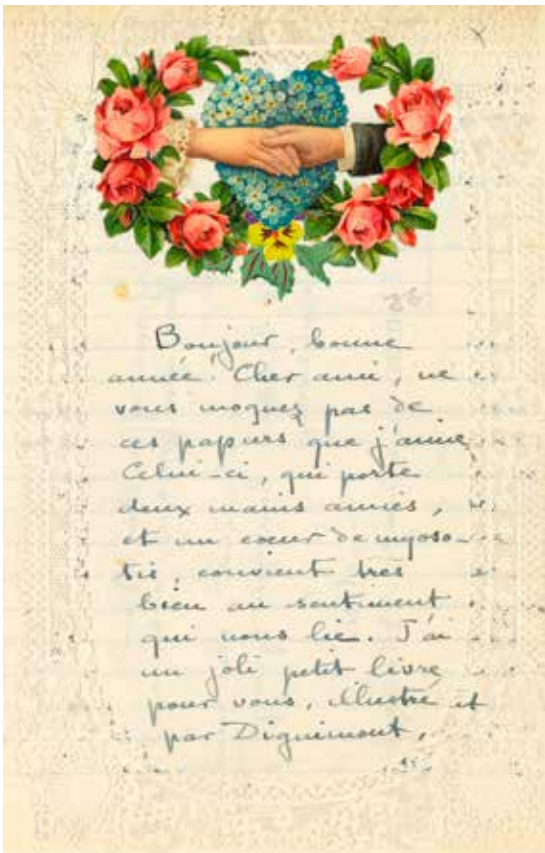 36
Bonjour, bonne
année. Cher ami, ne
vous moquez pas de
ces papiers que j'aime
Celui-ci, qui porte
deux mains amies,
et un coeur de myoso-
tis, convient très
bien au sentiment
qui nous lie. J'ai
un joli petit livre
pour vous, illustré et
par Dignimont,